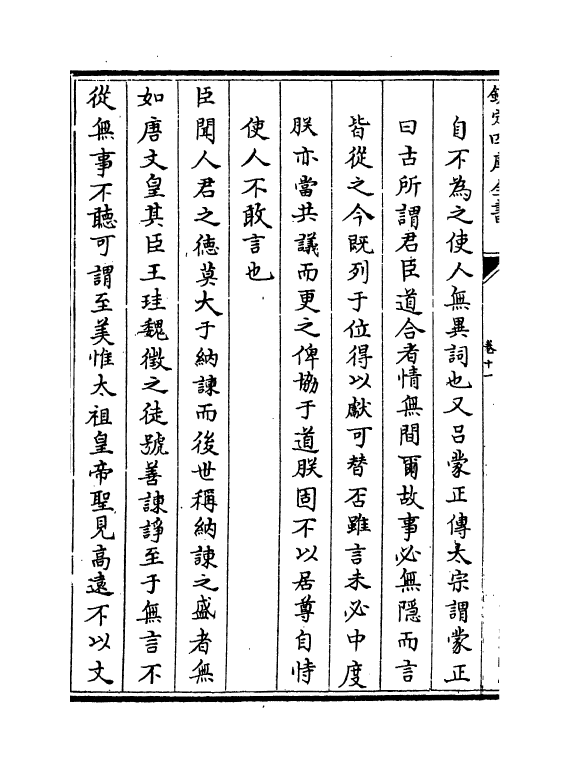 欽定四庫全書
卷十一
自不為之使人無異詞也又呂蒙正傳太宗謂蒙正
曰古所謂君臣道合者情無間爾故事必無隱而言
皆從之今既列于位得以獻可替否雖言未必中度
朕亦當共議而更之俾協于道朕固不以居尊自恃
使人不敢言也
臣聞人君之徳莫大于納諫而後世稱納諫之盛者無
如唐文皇其臣王珪魏徴之徒號善諫諍至于無言不
從無事不聽可謂至美惟太祖皇帝聖見高遠不以文